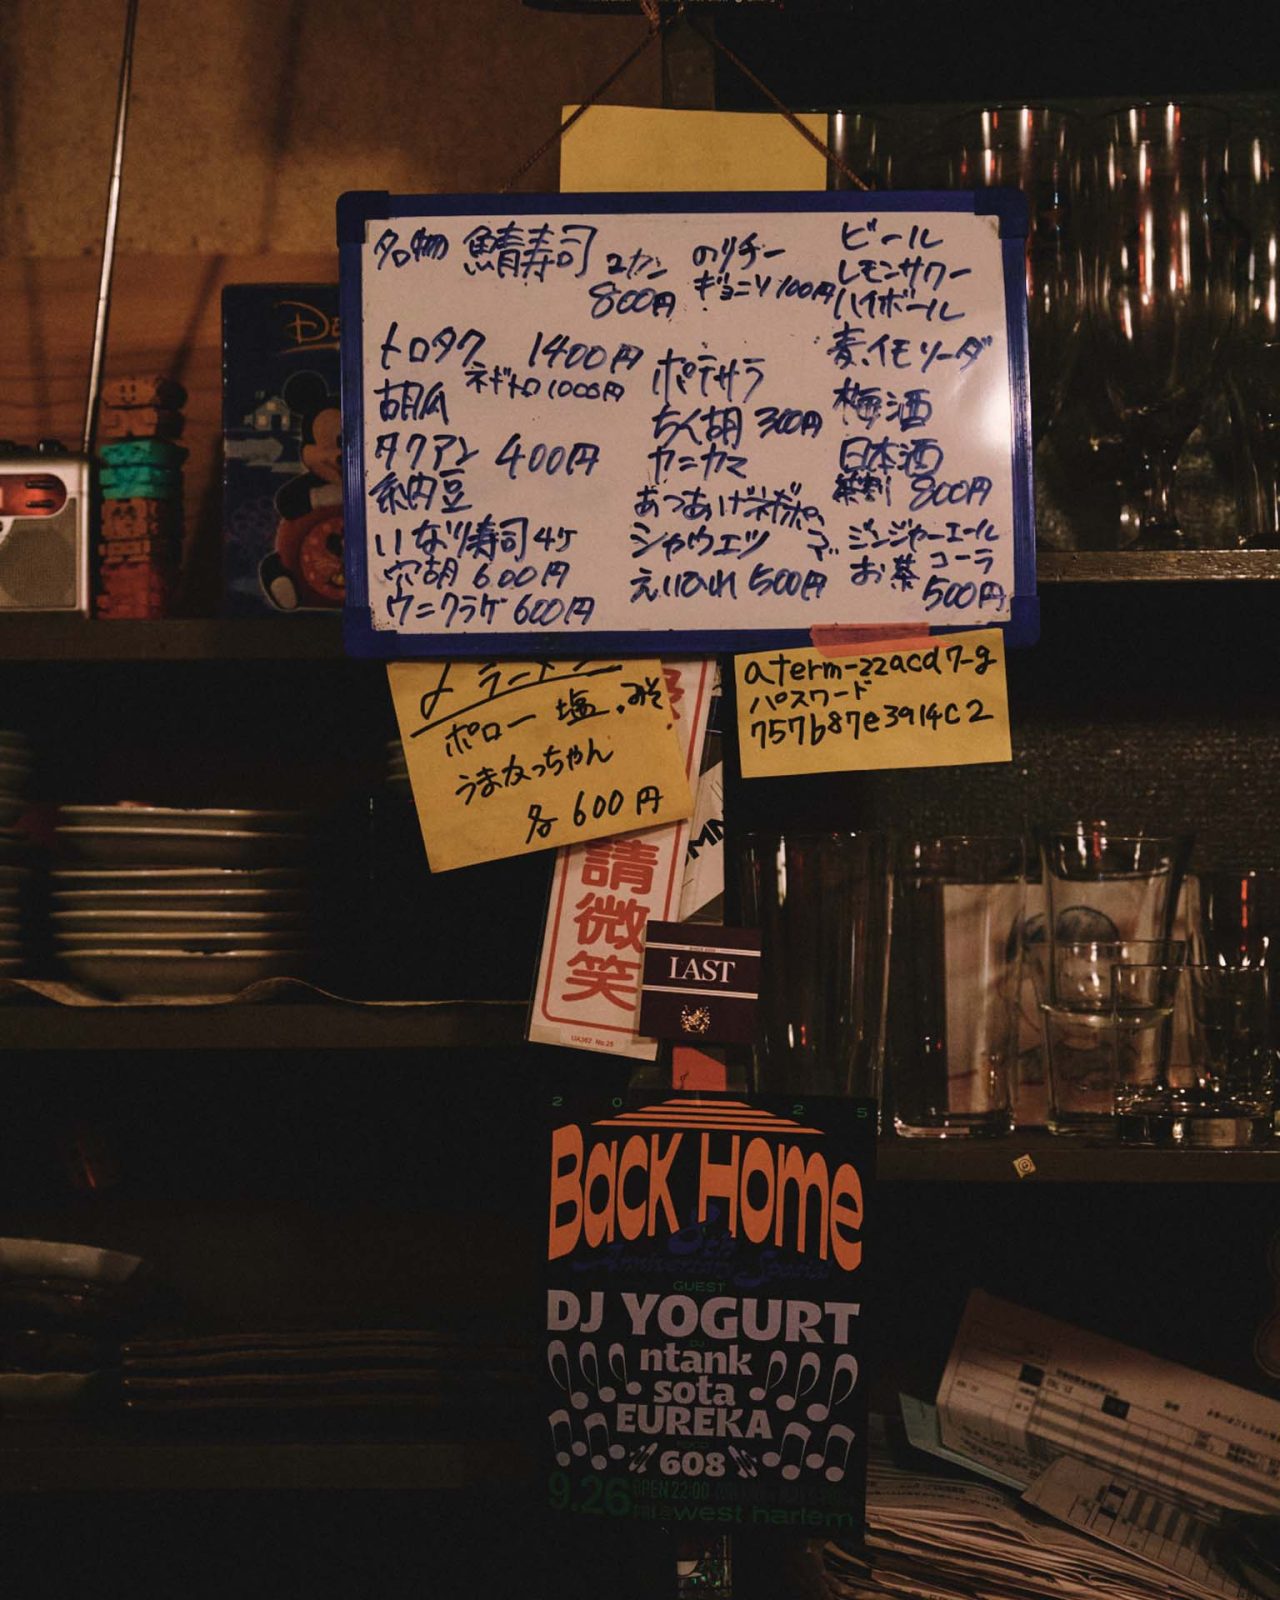 名物 鯖寿司 2カン
800円
トロタク 1400円
ネギトロ 1000円
胡瓜
タクアン 400円
納豆
いなり寿司 4ケ
穴胡 600円
ウニクラゲ 600円
のりチー
ギョニソ 100円
ポテサラ
ちく胡 300円
カニカマ
あつあげネギポン
シャウエッ
えいひれ 500円
ビール
レモンサワー
ハイボール
麦、イモソーダ
梅酒
日本酒
茶割 800円
ジンジャーエール
コーラ
お茶
500円
〆ラーメン
ポロー 塩、みそ
うまかっちゃん
各600円
aterm-22acd7-g
パスワード
757b87e3914c2
請微笑
UA362 No.25
LAST
2025
Back Home
8th
Anniversary Special
GUEST
DJ YOGURT
ntank
sota
EUREKA
608
9.26 OPEN 22:00
west harlem